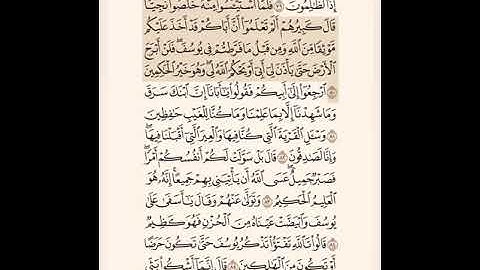 إِذًا لَّظَٰلِمُونَ ﴿٧٩﴾ فَلَمَّا ٱسْتَيْـَٔسُوا۟ مِنْهُ خَلَصُوا۟ نَجِيًّا
قَالَ كَبِيرُهُمْ أَلَمْ تَعْلَمُوٓا۟ أَنَّ أَبَاكُمْ قَدْ أَخَذَ عَلَيْكُم
مَّوْثِقًا مِّنَ ٱللَّهِ وَمِن قَبْلُ مَا فَرَّطتُمْ فِى يُوسُفَ ۖ فَلَنْ أَبْرَحَ
ٱلْأَرْضَ حَتَّىٰ يَأْذَنَ لِىٓ أَبِىٓ أَوْ يَحْكُمَ ٱللَّهُ لِى ۖ وَهُوَ خَيْرُ ٱلْحَٰكِمِينَ
﴿٨٠﴾ ٱرْجِعُوٓا۟ إِلَىٰٓ أَبِيكُمْ فَقُولُوا۟ يَٰٓأَبَانَآ إِنَّ ٱبْنَكَ سَرَقَ
وَمَا شَهِدْنَآ إِلَّا بِمَا عَلِمْنَا وَمَا كُنَّا لِلْغَيْبِ حَٰفِظِينَ
﴿٨١﴾ وَسْـَٔلِ ٱلْقَرْيَةَ ٱلَّتِى كُنَّا فِيهَا وَٱلْعِيرَ ٱلَّتِىٓ أَقْبَلْنَا فِيهَا ۖ
وَإِنَّا لَصَٰدِقُونَ ﴿٨٢﴾ قَالَ بَلْ سَوَّلَتْ لَكُمْ أَنفُسُكُمْ أَمْرًا ۖ
فَصَبْرٌ جَمِيلٌ ۖ عَسَى ٱللَّهُ أَن يَأْتِيَنِى بِهِمْ جَمِيعًا ۚ إِنَّهُۥ هُوَ
ٱلْعَلِيمُ ٱلْحَكِيمُ ﴿٨٣﴾ وَتَوَلَّىٰ عَنْهُمْ وَقَالَ يَٰٓأَسَفَىٰ عَلَىٰ
يُوسُفَ وَٱبْيَضَّتْ عَيْنَاهُ مِنَ ٱلْحُزْنِ فَهُوَ كَظِيمٌ
﴿٨٤﴾ قَالُوا۟ تَٱللَّهِ تَفْتَؤُا۟ تَذْكُرُ يُوسُفَ حَتَّىٰ تَكُونَ حَرَضًا
أَوْ تَكُونَ مِنَ ٱلْهَٰلِكِينَ ﴿٨٥﴾ قَالَ إِنَّمَآ أَشْكُوا۟ بَثِّى